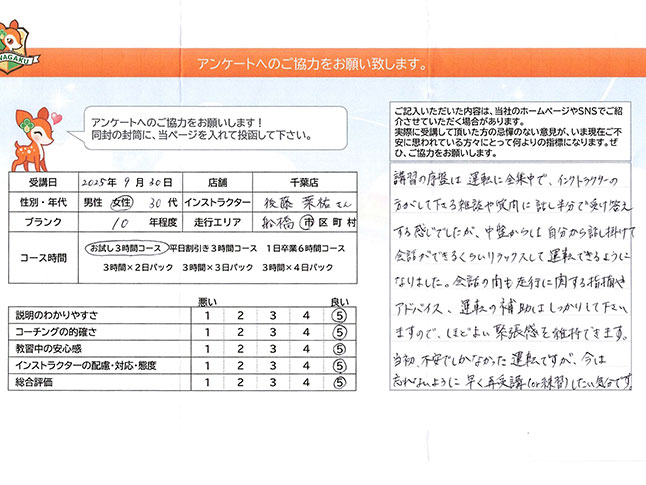 NAGAKU
アンケートへのご協力をお願い致します。
アンケートへのご協力をお願いします！
同封の封筒に、当ページを入れて投函して下さい。
受講日 2025年 9月 30日 店舗 千葉店
性別・年代 男性 女性 30代 インストラクター 後藤 菜祐さん
ブランク 10年程度 走行エリア 船橋 市区町村
コース時間 お試し3時間コース 平日割引き3時間コース 1日卒業6時間コース
3時間×2日パック 3時間×3日パック 3時間×4日パック
悪い 良い
説明のわかりやすさ 1 2 3 4 5
コーチングの的確さ 1 2 3 4 5
教習中の安心感 1 2 3 4 5
インストラクターの配慮・対応・態度 1 2 3 4 5
総合評価 1 2 3 4 5
ご記入いただいた内容は、当社のホームページやSNSでご紹
介させていただく場合があります。
実際に受講して頂いた方の忌憚のない意見が、いま現在ご不
安に思われている方々にとって何よりの指標になります。ぜ
ひ、ご協力をお願いします。
講習の序盤は運転に全集中で、インクトラクターの
方がして下さる雑談や質問に話し半分で受け答え
する感じでしたが、中盤からは自分から話し掛けて
会話ができるくらいリラックスして運転できるように
なりました。会話の間も走行に関する指摘や
アドバイス、運転の補助はしっかりして下さい
ますので、ほどよい緊張感を維持できます。
当初、不安でしかなかった運転ですが、今は
忘れないように早く再受講(or練習)したい気分です。